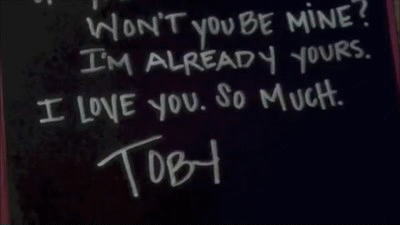 WON'T YOU BE MINE?
I'M ALREADY YOURS.
I LOVE YOU. SO MUCH.
TOBY